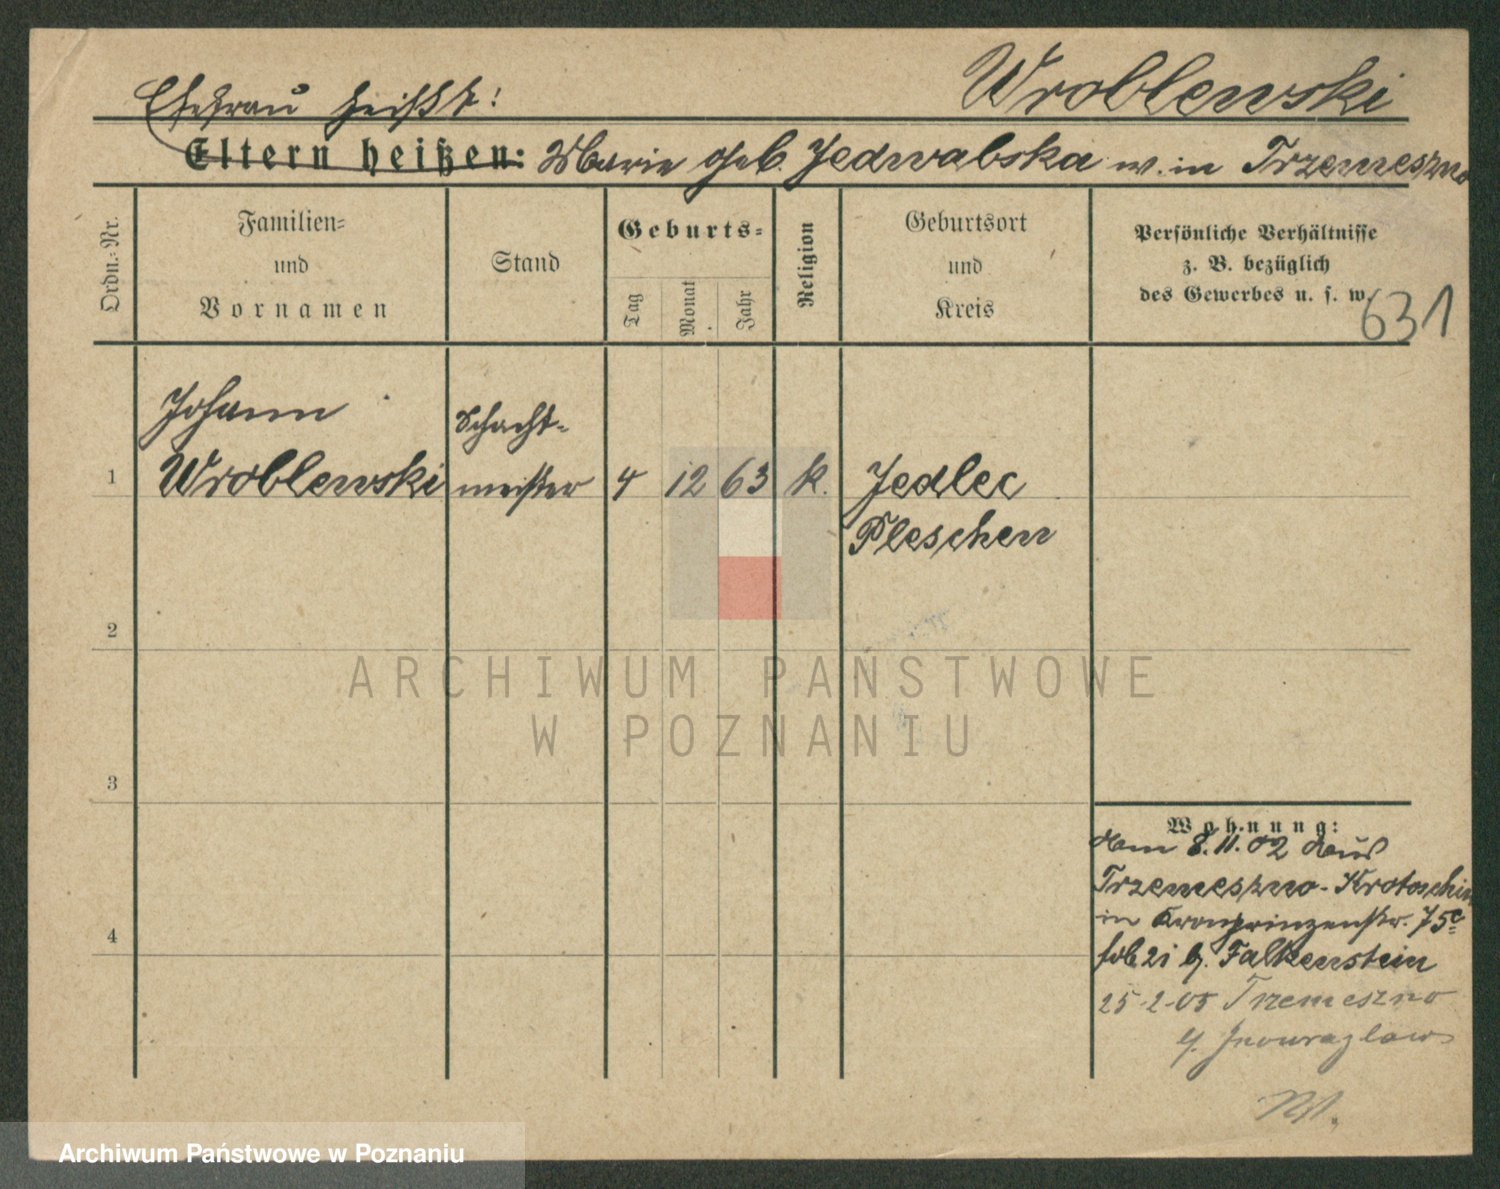 Wroblewski
Ehefrau heißt:
Eltern heißen: Marie geb. Jedwabska w. in Trzemeszno
Ordn.-Nr.
Familien-
und
Vornamen
Stand
Geburts-
Tag
Monat
Jahr
Religion
Geburtsort
und
Kreis
Persönliche Verhältnisse
z. B. bezüglich
des Gewerbes u. s. w.
631
Johann
Schacht-
1 Wroblewski meister 4 12 63 k. Jedlec
Pleschen
2
3
4
Wohnung:
8.11.02
Trzemeszno - Krotoschin
in Kronprinzenstr. 75c
b. Falkenstein
25.2.05 Trzemeszno
Inowrazlaw
ARCHIWUM PAŃSTWOWE
W POZNANIU
Archiwum Państwowe w Poznaniu